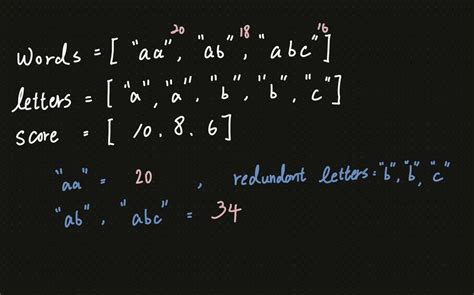 20 18 16
words = [ "aa", "ab", "abc" ]
letters = [ "a", "a", "b", "b", "c" ]
score = [ 10. 8. 6 ]
"aa" = 20 , redundant letters = "b", "b", "c"
"ab", "abc" = 34